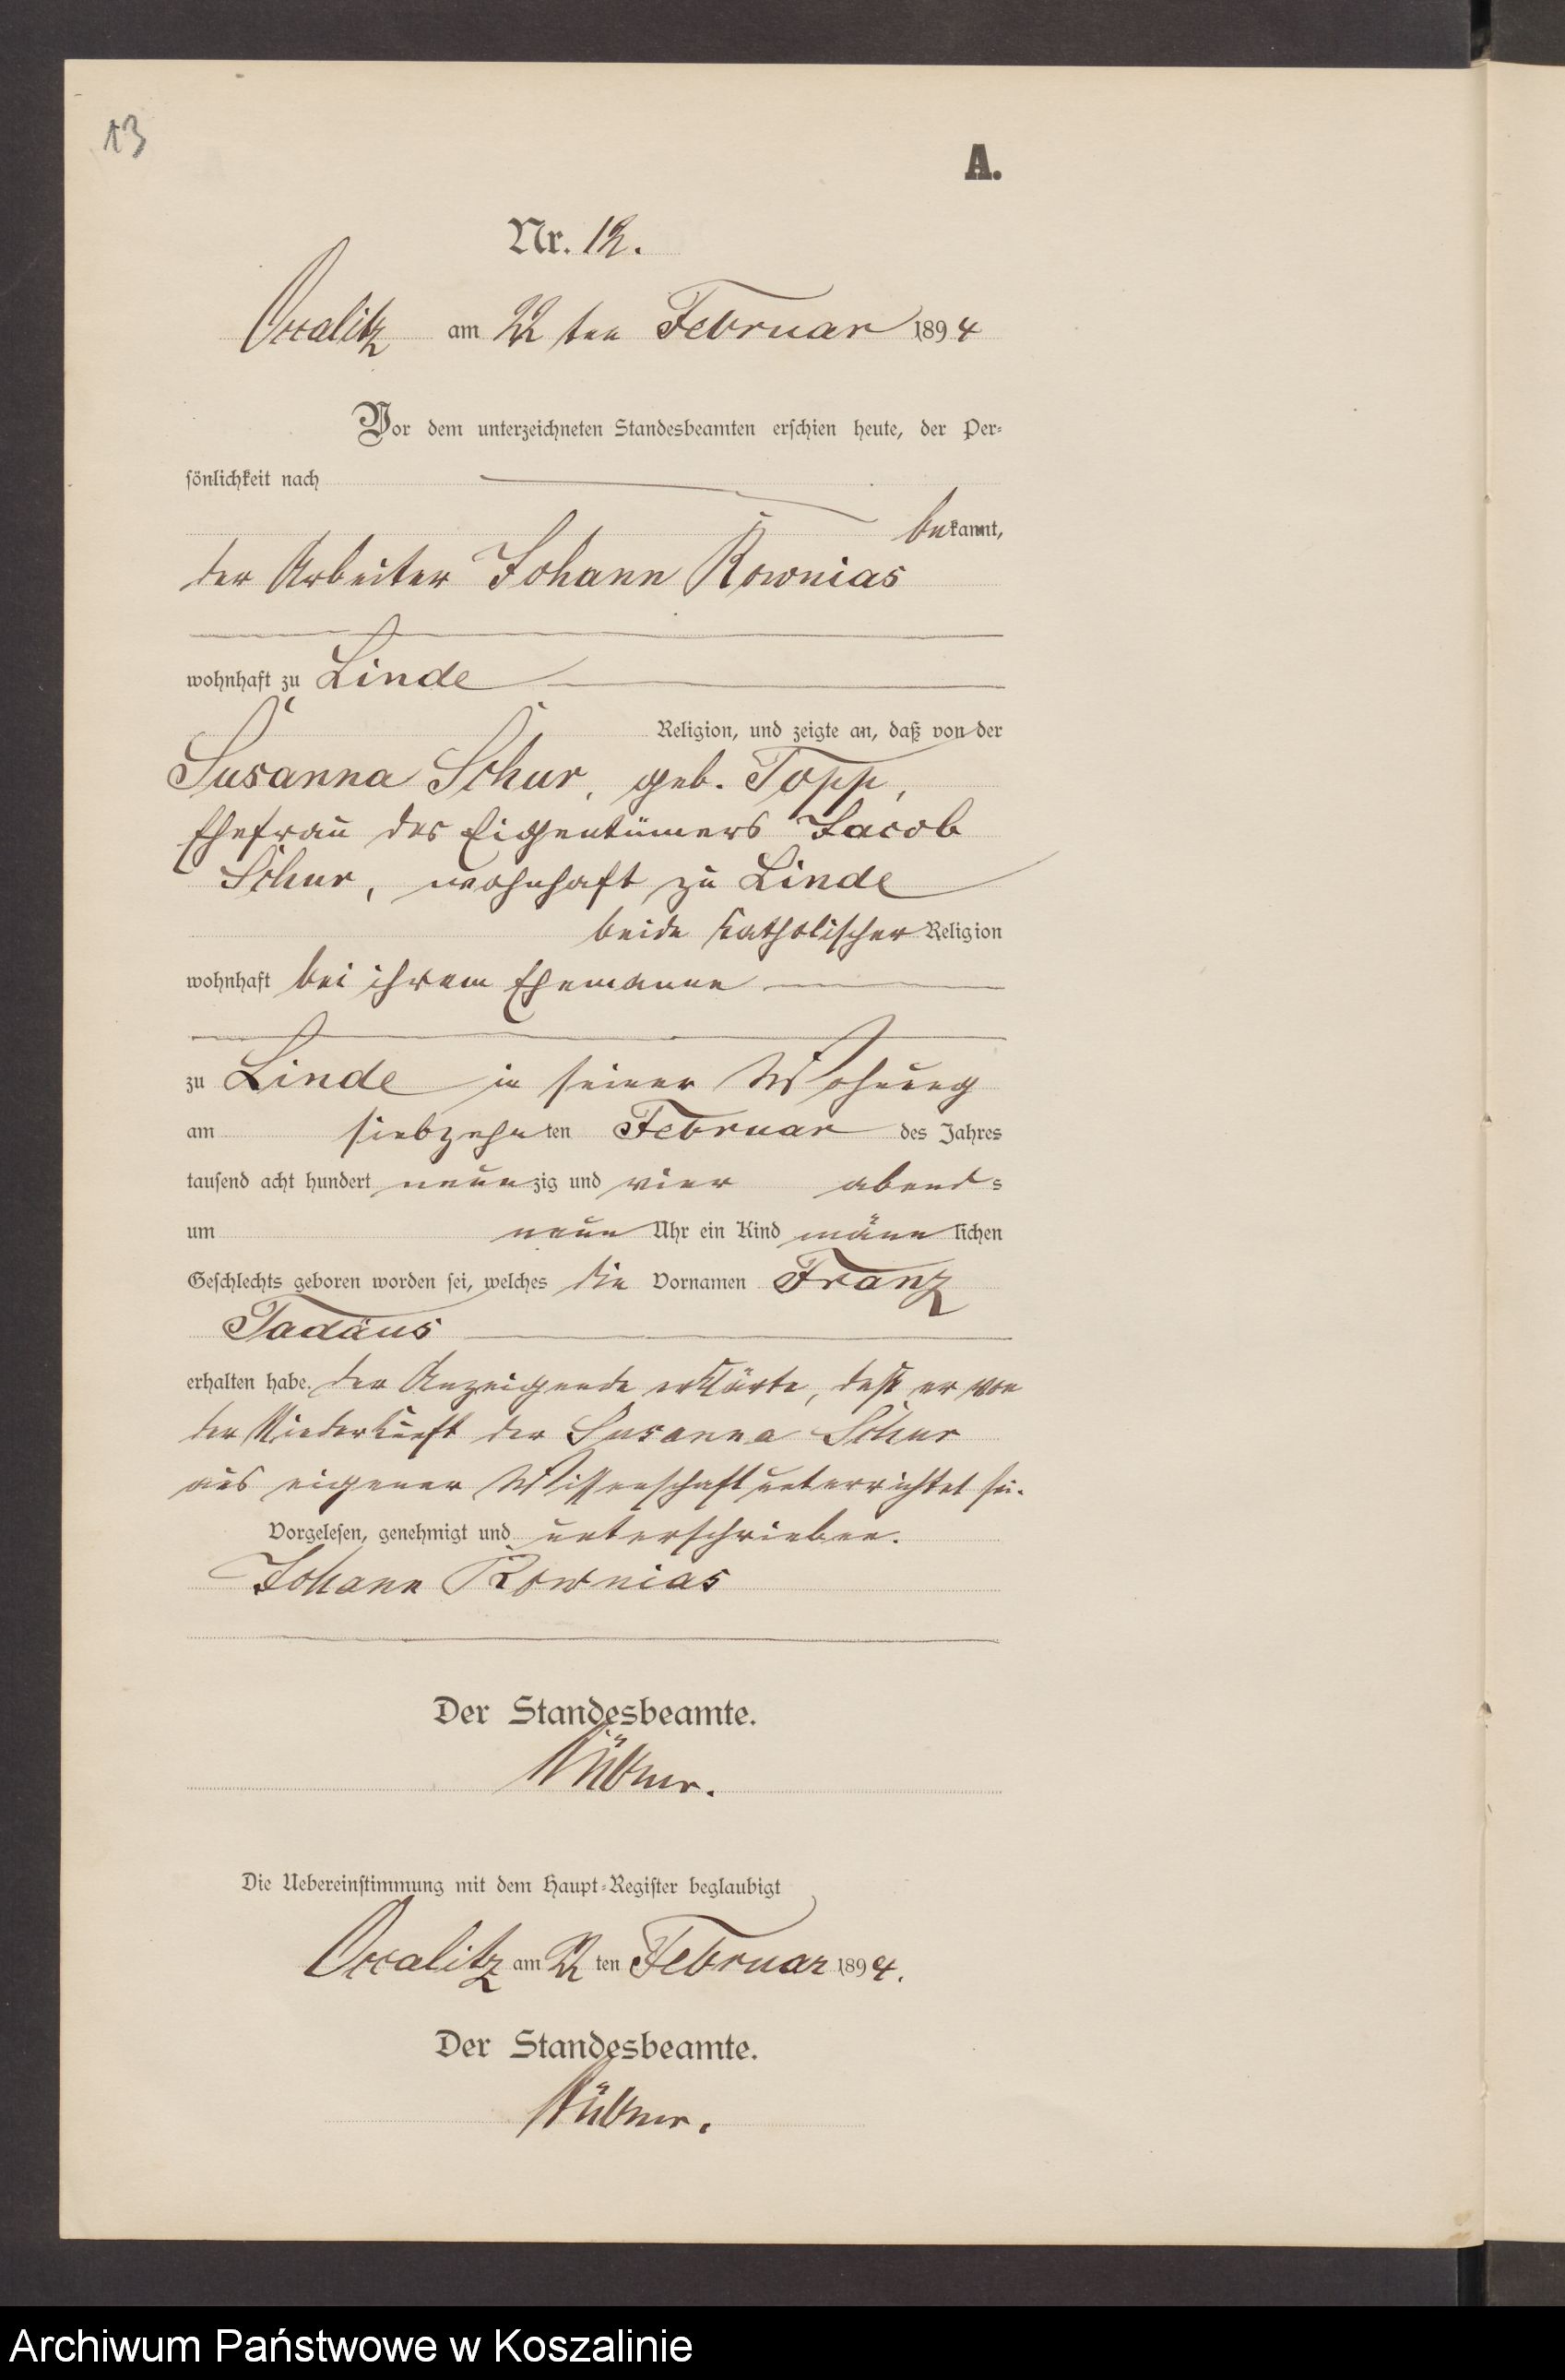 13
A.
Nr. 12.
Occalitz am 22 ten Februar 1894
Vor dem unterzeichneten Standesbeamten erschien heute, der Per-
sönlichkeit nach
bekannt,
der Arbeiter Johann Rownias
wohnhaft zu Linde
Religion, und zeigte an, daß von der
Susanna Schur, geb. Topp,
Ehefrau des Eigentümers Jacob
Schur, wohnhaft zu Linde
beide katholischer Religion
wohnhaft bei ihrem Ehemanne
zu Linde in seiner Wohnung
am siebzehnten Februar des Jahres
tausend acht hundert neunzig und vier abends
um neun Uhr ein Kind männlichen
Geschlechts geboren worden sei, welches die Vornamen Franz
Tadäus
erhalten habe. Der Anzeigende erklärte, daß er von
der Niederkunft der Susanna Schur
aus eigener Wissenschaft unterrichtet sei.
Vorgelesen, genehmigt und unterschrieben.
Johann Rownias
Der Standesbeamte.
Die Uebereinstimmung mit dem Haupt-Register beglaubigt
Occalitz am 22 ten Februar 1894.
Der Standesbeamte.
Archiwum Państwowe w Koszalinie